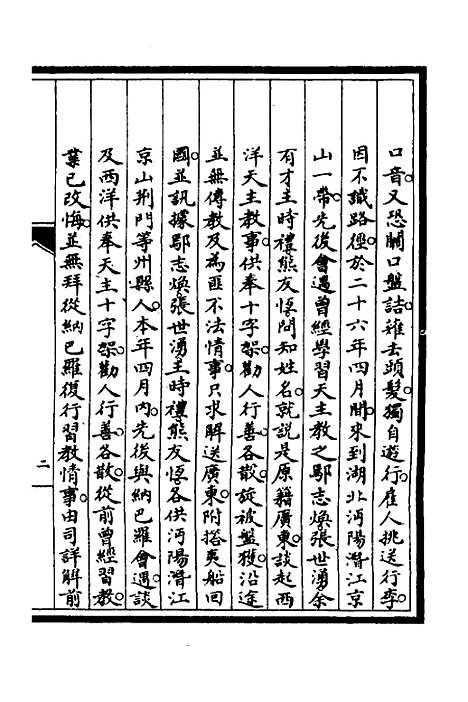 口音又恐關口盤詰薙去頭髮獨自遊行雇人挑送行李
因不識路徑於二十六年四月間來到湖北沔陽潛江京
山一帶先後會遇曾經學習天主教之鄢志煥張世湧余
有才王時禮熊友惪問知姓名就說是原籍廣東談起西
洋天主教事供奉十字架勸人行善各散旋被盤獲沿途
並無傳教及為匪不法情事只求解送廣東附搭夷船回
國並訊據鄢志煥張世湧王時禮熊友惪各供沔陽潛江
京山荆門等州縣人本年四月内先後與納巴羅會遇談
及西洋供奉天主十字架勸人行善各散從前曾經習教
業已改悔並無拜從納巴羅復行習教情事由司詳解前
二